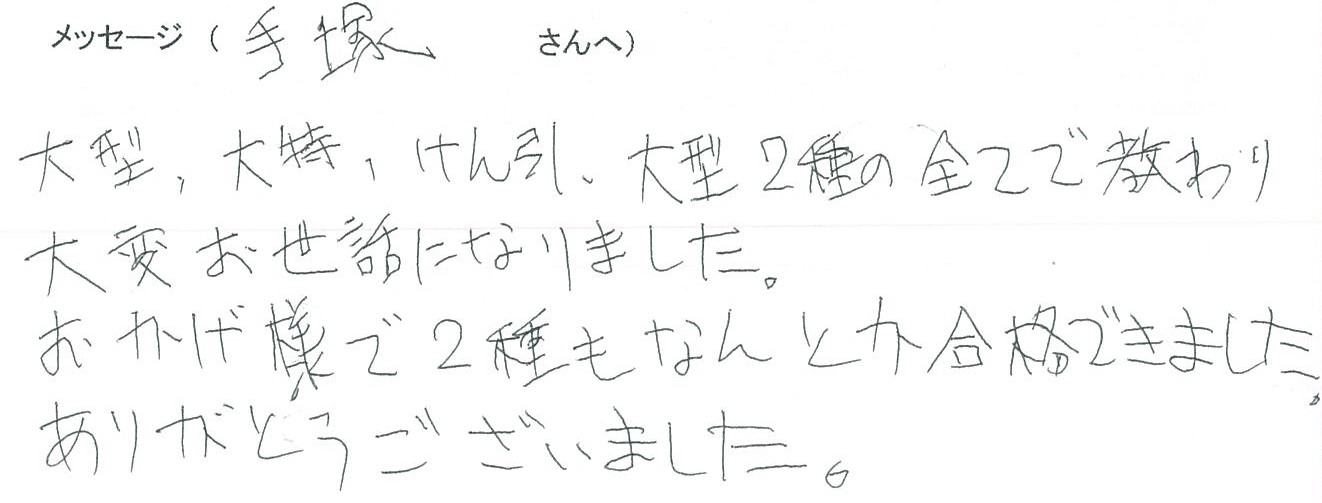 メッセージ（手塚 さんへ）
大型、大特、けん引、大型2種の全てで教わり
大変お世話になりました。
おかげ様で2種もなんとか合格できました。
ありがとうございました。